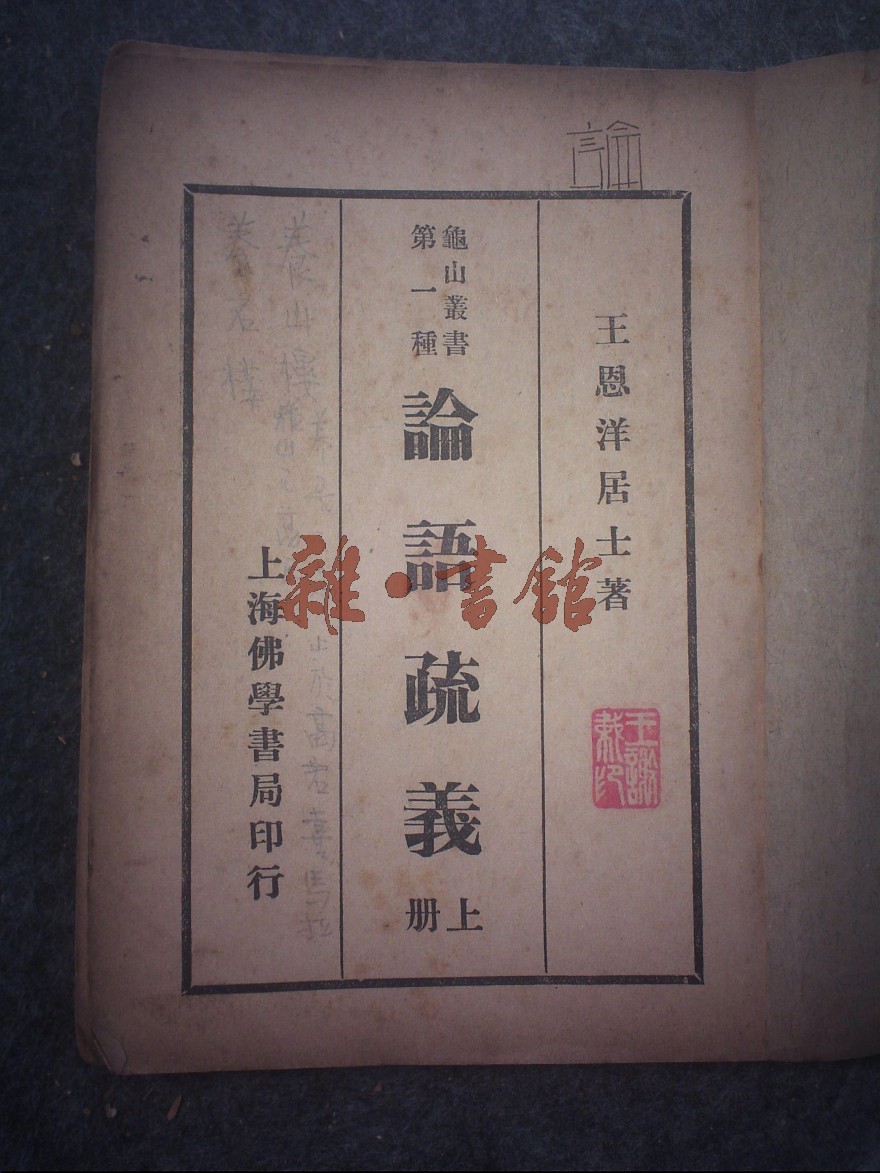 論
王恩洋居士著
龜山叢書
第一種
論語疏義
上
册
上海佛學書局印行
養山樓
養若樓
雜·書館